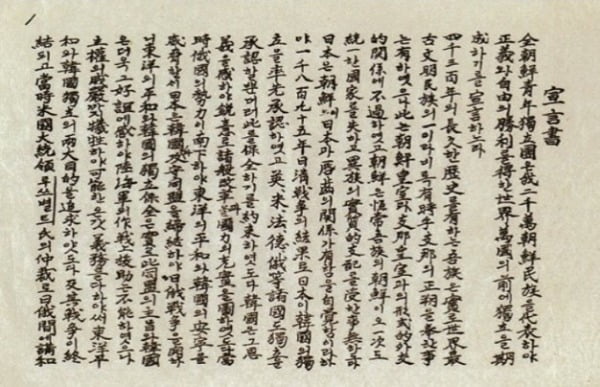 宣言書
全朝鮮靑年獨立團은我二千萬朝鮮民族을代表하야
正義와自由의勝利를得한世界萬國의前에獨立을期
成하기를宣言하노라
四千三百年의長久한歷史를有하는吾族은實로世界最
古文明民族의一이라비록有時乎支那의正朔을奉한事
는有하엿으나此는朝鮮皇室과支那皇室과의形式的外交
的關係에不過하엿고朝鮮은恒常吾族의朝鮮이오一次도
統一한國家를失하고異族의實質的支配를受한事無하도다
日本은朝鮮이日本과脣齒의關係가有함을自覺함이라하
야一千八百九十五年日淸戰爭의結果로日本이韓國의獨
立을率先承認하엿고英、米、法、德、俄等諸國도獨立을
承認할뿐더러此를保全하기를約束하엿도다韓國은그恩
義를感하야銳意로諸般改革과國力의充實을圖하엿도다當
時俄國의勢力이南下하야東洋의平和와韓國의安寧을
威脅할새日本은韓國과攻守同盟을締結하야日俄戰爭을開하
니東洋의平和와韓國의獨立保全은實로此同盟의主旨와韓國
은더욱그好誼에感하야陸海軍의作戰上援助는不能하엿으나
主權의威嚴까지犧牲하야可能한온갖義務를다하야써東洋平
和와韓國獨立의兩大目的을追求하얏도다及其戰爭이終
結되고當時米國大統領루쓰벨트氏의仲裁로日俄間에講和
1